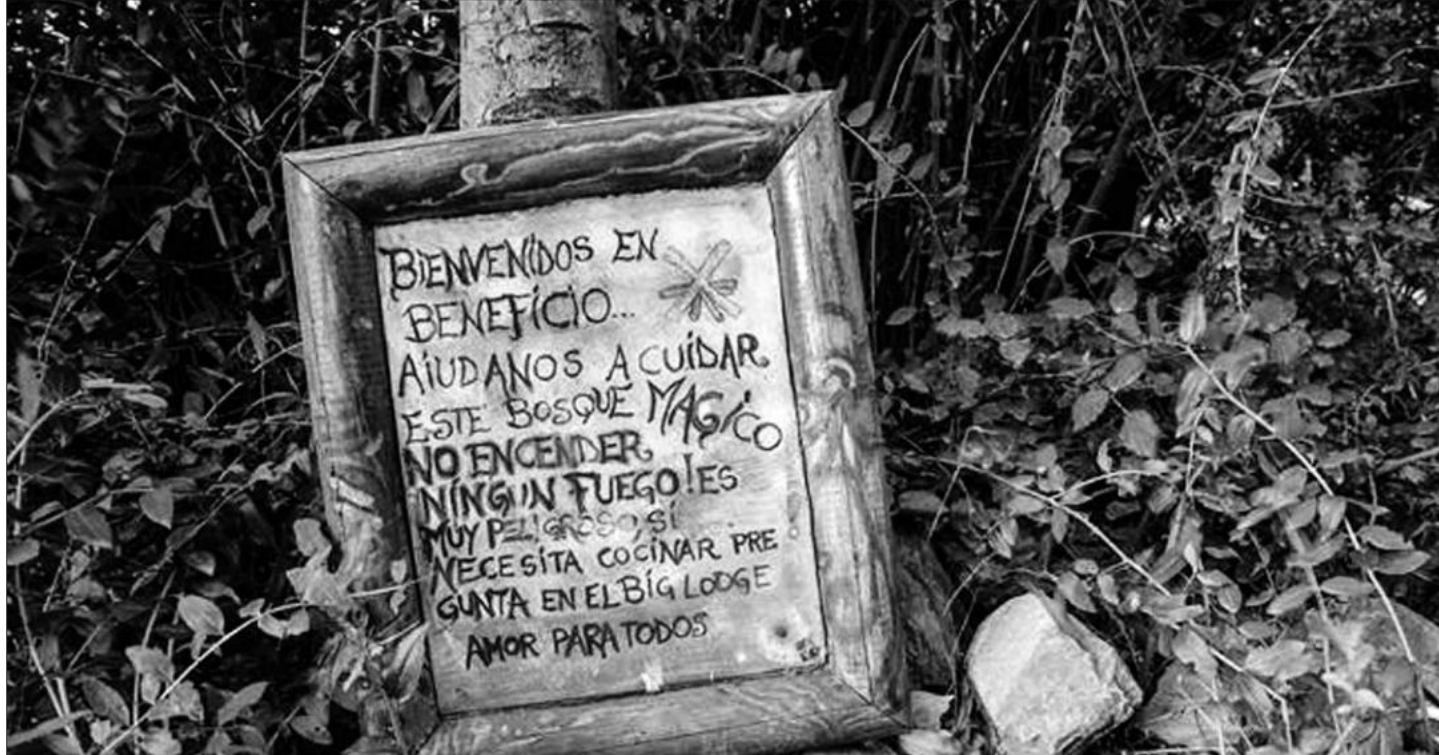 BIENVENIDOS EN
BENEFICIO...
AIUDANOS A CUIDAR
ESTE BOSQUE MAGICO
NO ENCENDER
NINGUN FUEGO! ES
MUY PELIGROSO, SI
NECESITA COCINAR PRE
GUNTA EN EL BIG LODGE
AMOR PARA TODOS